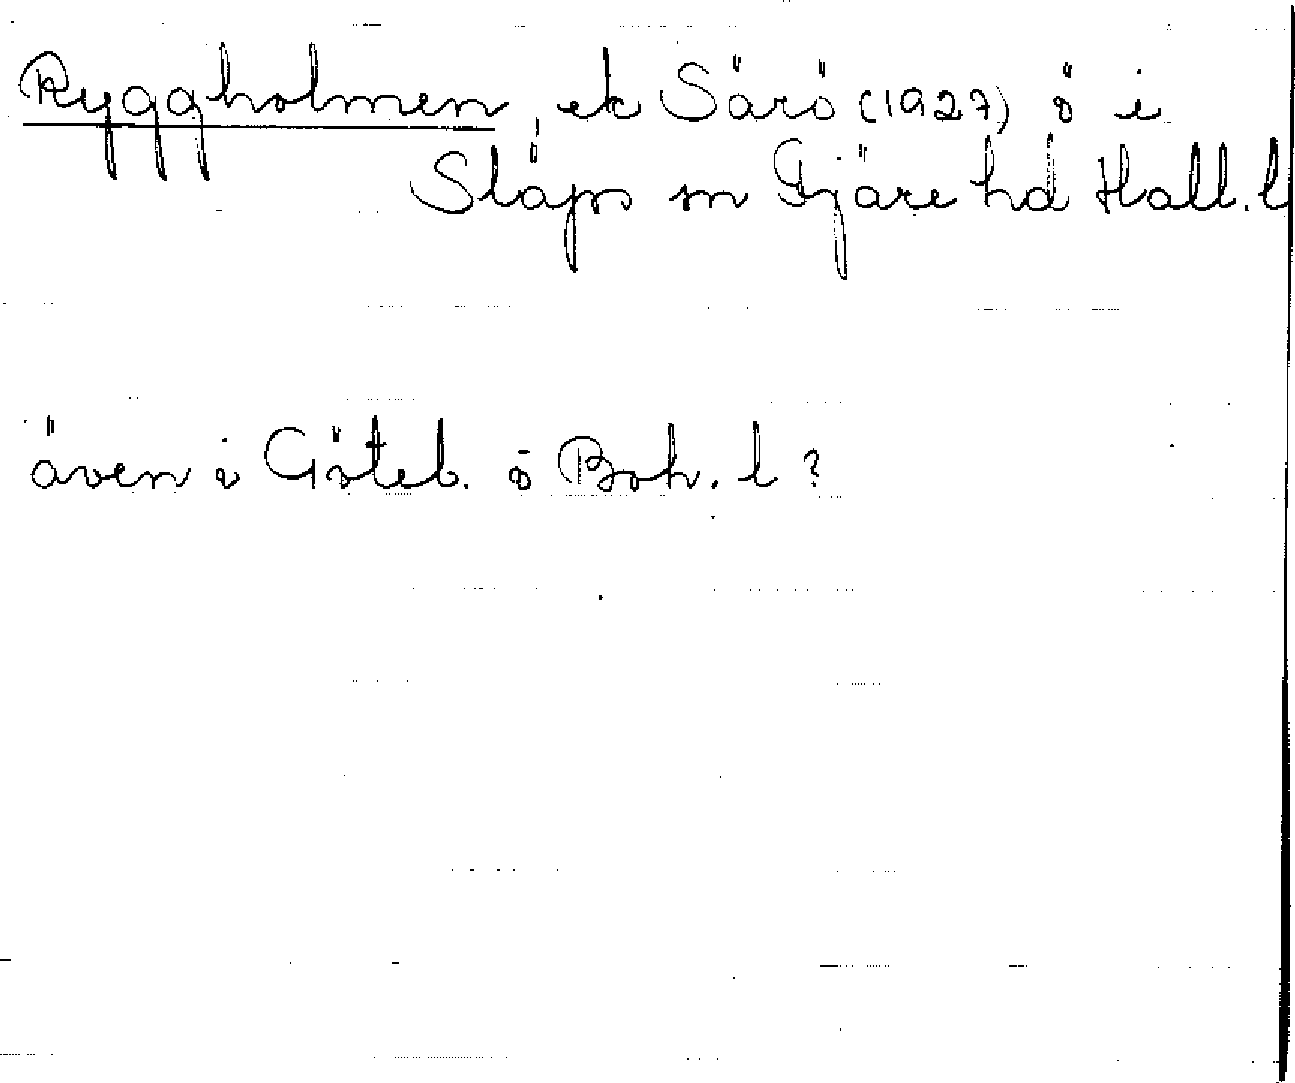 Ryggholmen, ek Särö (1927) ö i
Släps sn Fjäre hd Hall. l
även i Göteb. o Boh. l ?